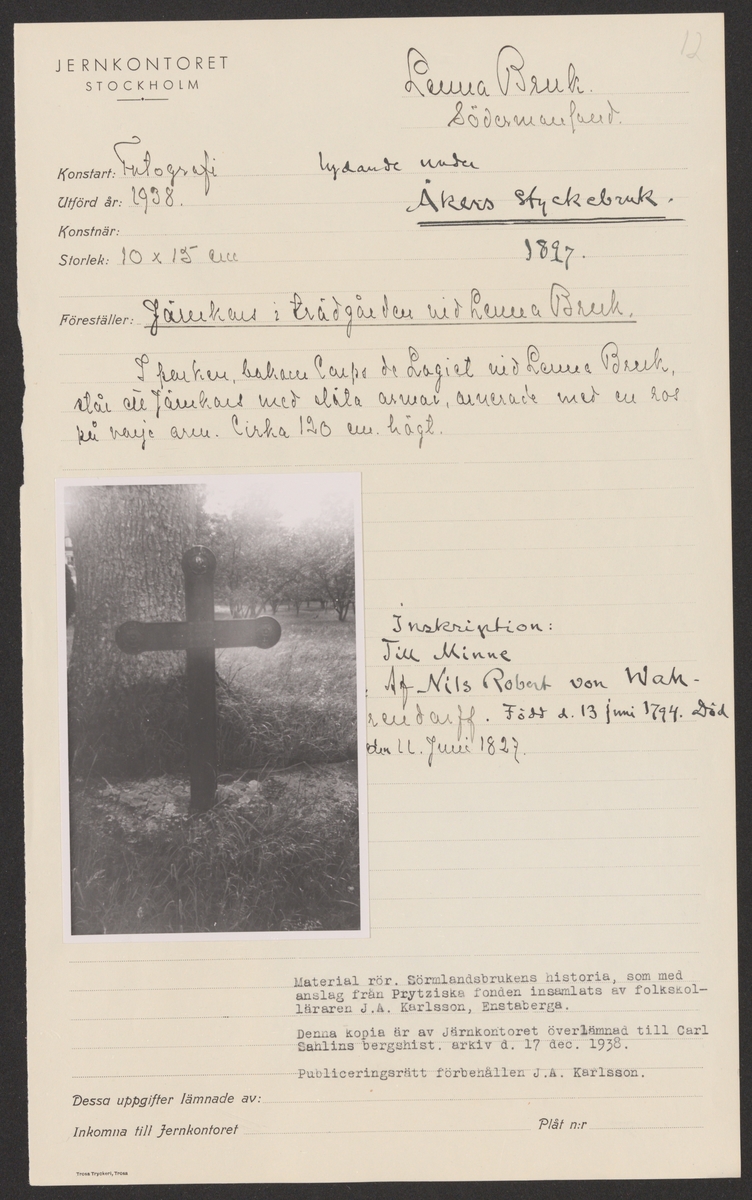 12
JERNKONTORET
STOCKHOLM
Lenna Bruk.
Södermanland.
Konstart: Fotografi
lydande under
Utförd år: 1938.
Åkers styckebruk.
Konstnär:
Storlek: 10 x 15 cm
1827.
Föreställer: Järnkors i trädgården vid Lenna Bruk.
I parken, bakom Corps de Logiet vid Lenna Bruk,
står ett Järnkors med släta armar, ornerade med en ros
på varje arm. Cirka 120 cm. högt.
Inskription:
Till Minne
Af Nils Robert von Wah-
rendorff. Född d. 13 juni 1794. Död
den 11. Juni 1827.
Material rör. Sörmlandsbrukens historia, som med
anslag från Prytziska fonden insamlats av folkskol-
läraren J.A. Karlsson, Enstaberga.
Denna kopia är av Järnkontoret överlämnad till Carl
Sahlins bergshist. arkiv d. 17 dec. 1938.
Publiceringsrätt förbehållen J.A. Karlsson.
Dessa uppgifter lämnade av:
Inkomna till Jernkontoret
Plåt n:r
Trosa Tryckeri, Trosa